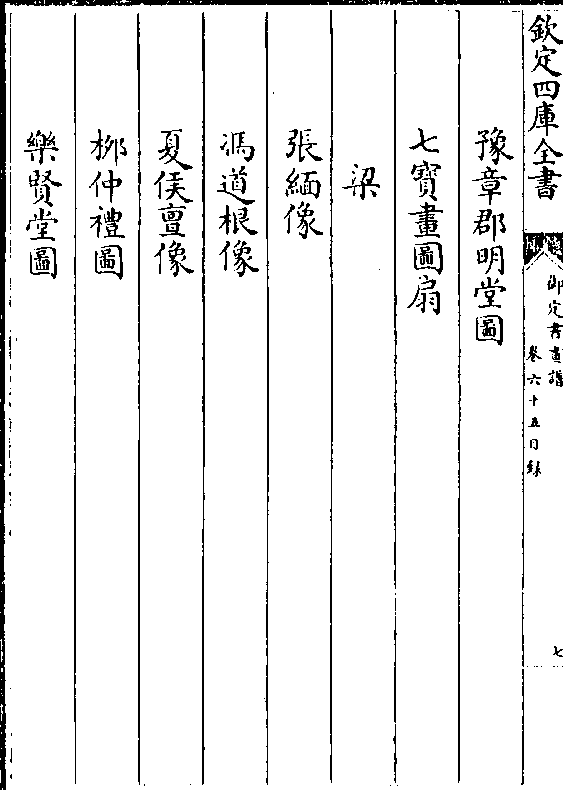 欽定四庫全書
御定書畫譜
卷六十五目錄
七
豫章郡明堂圖
七寶畫圖扇
梁
張緬像
馮道根像
夏侯亶像
柳仲禮圖
樂賢堂圖